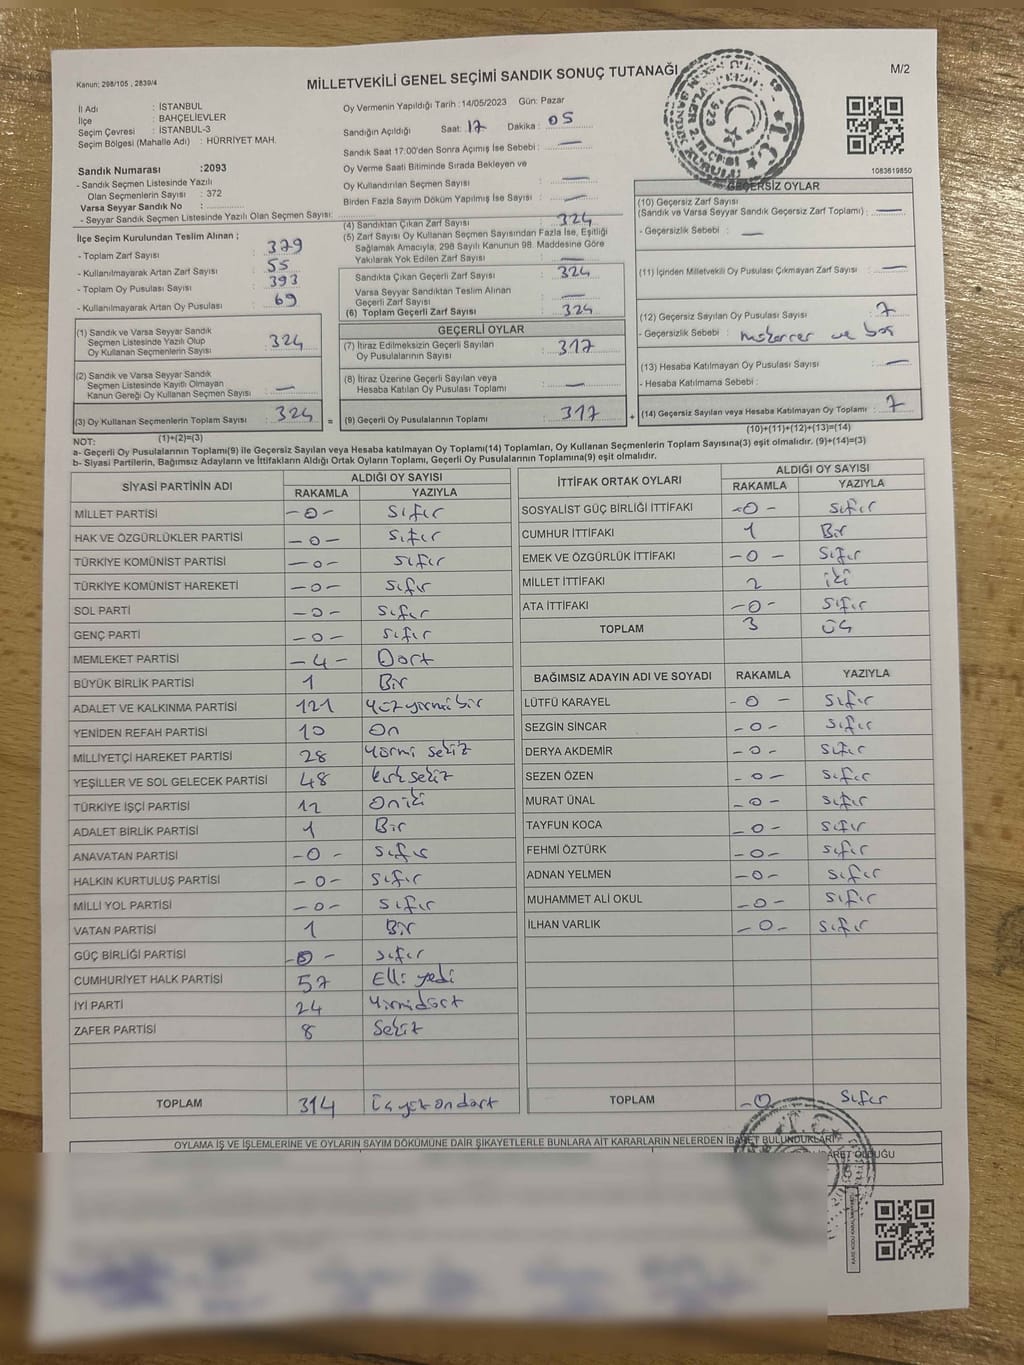 Kanun: 298/105 , 2839/4
MİLLETVEKİLİ GENEL SEÇİMİ SANDIK SONUÇ TUTANAĞI
M/2
İl Adı : İSTANBUL
İlçe : BAHÇELİEVLER
Seçim Çevresi : İSTANBUL-3
Seçim Bölgesi (Mahalle Adı) : HÜRRİYET MAH.
Oy Vermenin Yapıldığı Tarih : 14/05/2023 Gün: Pazar
Sandığın Açıldığı Saat: 17 Dakika : 05
Sandık Saat 17:00'den Sonra Açımış İse Sebebi : —
Oy Verme Saati Bitiminde Sırada Bekleyen ve
Oy Kullandırılan Seçmen Sayısı : —
Birden Fazla Sayım Döküm Yapılmış İse Sayısı : —
1083619850
Sandık Numarası :2093
- Sandık Seçmen Listesinde Yazılı
Olan Seçmenlerin Sayısı : 372
Varsa Seyyar Sandık No :
- Seyyar Sandık Seçmen Listesinde Yazılı Olan Seçmen Sayısı:
İlçe Seçim Kurulundan Teslim Alınan ;
- Toplam Zarf Sayısı : 379
- Kullanılmayarak Artan Zarf Sayısı : 55
- Toplam Oy Pusulası Sayısı : 393
- Kullanılmayarak Artan Oy Pusulası : 69
(1) Sandık ve Varsa Seyyar Sandık
Seçmen Listesinde Yazılı Olup
Oy Kullanan Seçmenlerin Sayısı : 324
(2) Sandık ve Varsa Seyyar Sandık
Seçmen Listesinde Kayıtlı Olmayan
Kanun Gereği Oy Kullanan Seçmen Sayısı : —
(3) Oy Kullanan Seçmenlerin Toplam Sayısı : 324 =
(1)+(2)=(3)
(4) Sandıktan Çıkan Zarf Sayısı : 324
(5) Zarf Sayısı Oy Kullanan Seçmen Sayısından Fazla İse, Eşitliği
Sağlamak Amacıyla, 298 Sayılı Kanunun 98. Maddesine Göre
Yakılarak Yok Edilen Zarf Sayısı : —
Sandıkta Çıkan Geçerli Zarf Sayısı : 324
Varsa Seyyar Sandıktan Teslim Alınan
Geçerli Zarf Sayısı : —
(6) Toplam Geçerli Zarf Sayısı : 324
GEÇERLİ OYLAR
(7) İtiraz Edilmeksizin Geçerli Sayılan
Oy Pusulalarının Sayısı : 317
(8) İtiraz Üzerine Geçerli Sayılan veya
Hesaba Katılan Oy Pusulası Toplamı : —
(9) Geçerli Oy Pusulalarının Toplamı : 317 +
GEÇERSİZ OYLAR
(10) Geçersiz Zarf Sayısı
(Sandık ve Varsa Seyyar Sandık Geçersiz Zarf Toplamı) : —
- Geçersizlik Sebebi : —
(11) İçinden Milletvekili Oy Pusulası Çıkmayan Zarf Sayısı : —
(12) Geçersiz Sayılan Oy Pusulası Sayısı : 7
- Geçersizlik Sebebi : mükerrer ve boş
(13) Hesaba Katılmayan Oy Pusulası Sayısı : —
- Hesaba Katılmama Sebebi :
(14) Geçersiz Sayılan veya Hesaba Katılmayan Oy Toplamı : 7
(10)+(11)+(12)+(13)=(14)
NOT:
a- Geçerli Oy Pusulalarının Toplamı(9) ile Geçersiz Sayılan veya Hesaba katılmayan Oy Toplamı(14) Toplamları, Oy Kullanan Seçmenlerin Toplam Sayısına(3) eşit olmalıdır. (9)+(14)=(3)
b- Siyasi Partilerin, Bağımsız Adayların ve İttifakların Aldığı Ortak Oyların Toplamı, Geçerli Oy Pusulalarının Toplamına(9) eşit olmalıdır.
SİYASİ PARTİNİN ADI ALDIĞI OY SAYISI
RAKAMLA YAZIYLA
MİLLET PARTİSİ -0- Sıfır
HAK VE ÖZGÜRLÜKLER PARTİSİ -0- Sıfır
TÜRKİYE KOMÜNİST PARTİSİ -0- Sıfır
TÜRKİYE KOMÜNİST HAREKETİ -0- Sıfır
SOL PARTİ -0- Sıfır
GENÇ PARTİ -0- Sıfır
MEMLEKET PARTİSİ -4- Dört
BÜYÜK BİRLİK PARTİSİ 1 Bir
ADALET VE KALKINMA PARTİSİ 121 Yüzyirmibir
YENİDEN REFAH PARTİSİ 10 On
MİLLİYETÇİ HAREKET PARTİSİ 28 Yirmi sekiz
YEŞİLLER VE SOL GELECEK PARTİSİ 48 kırksekiz
TÜRKİYE İŞÇİ PARTİSİ 12 Oniki
ADALET BİRLİK PARTİSİ 1 Bir
ANAVATAN PARTİSİ -0- Sıfır
HALKIN KURTULUŞ PARTİSİ -0- Sıfır
MİLLİ YOL PARTİSİ -0- Sıfır
VATAN PARTİSİ 1 Bir
GÜÇ BİRLİĞİ PARTİSİ -0- Sıfır
CUMHURİYET HALK PARTİSİ 57 Elli yedi
İYİ PARTİ 24 Yirmidört
ZAFER PARTİSİ 8 Sekiz
TOPLAM 314 Üçyüzondört
İTTİFAK ORTAK OYLARI ALDIĞI OY SAYISI
RAKAMLA YAZIYLA
SOSYALİST GÜÇ BİRLİĞİ İTTİFAKI -0- Sıfır
CUMHUR İTTİFAKI 1 Bir
EMEK VE ÖZGÜRLÜK İTTİFAKI -0- Sıfır
MİLLET İTTİFAKI 2 iki
ATA İTTİFAKI -0- Sıfır
TOPLAM 3 Üç
BAĞIMSIZ ADAYIN ADI VE SOYADI RAKAMLA YAZIYLA
LÜTFÜ KARAYEL -0- Sıfır
SEZGİN SİNCAR -0- Sıfır
DERYA AKDEMİR -0- Sıfır
SEZEN ÖZEN -0- Sıfır
MURAT ÜNAL -0- Sıfır
TAYFUN KOCA -0- Sıfır
FEHMİ ÖZTÜRK -0- Sıfır
ADNAN YELMEN -0- Sıfır
MUHAMMET ALİ OKUL -0- Sıfır
İLHAN VARLIK -0- Sıfır
TOPLAM -0 Sıfır
OYLAMA İŞ VE İŞLEMLERİNE VE OYLARIN SAYIM DÖKÜMÜNE DAİR ŞİKAYETLERLE BUNLARA AİT KARARLARIN NELERDEN İBARET BULUNDUKLARI
OLDUĞU
T.C.